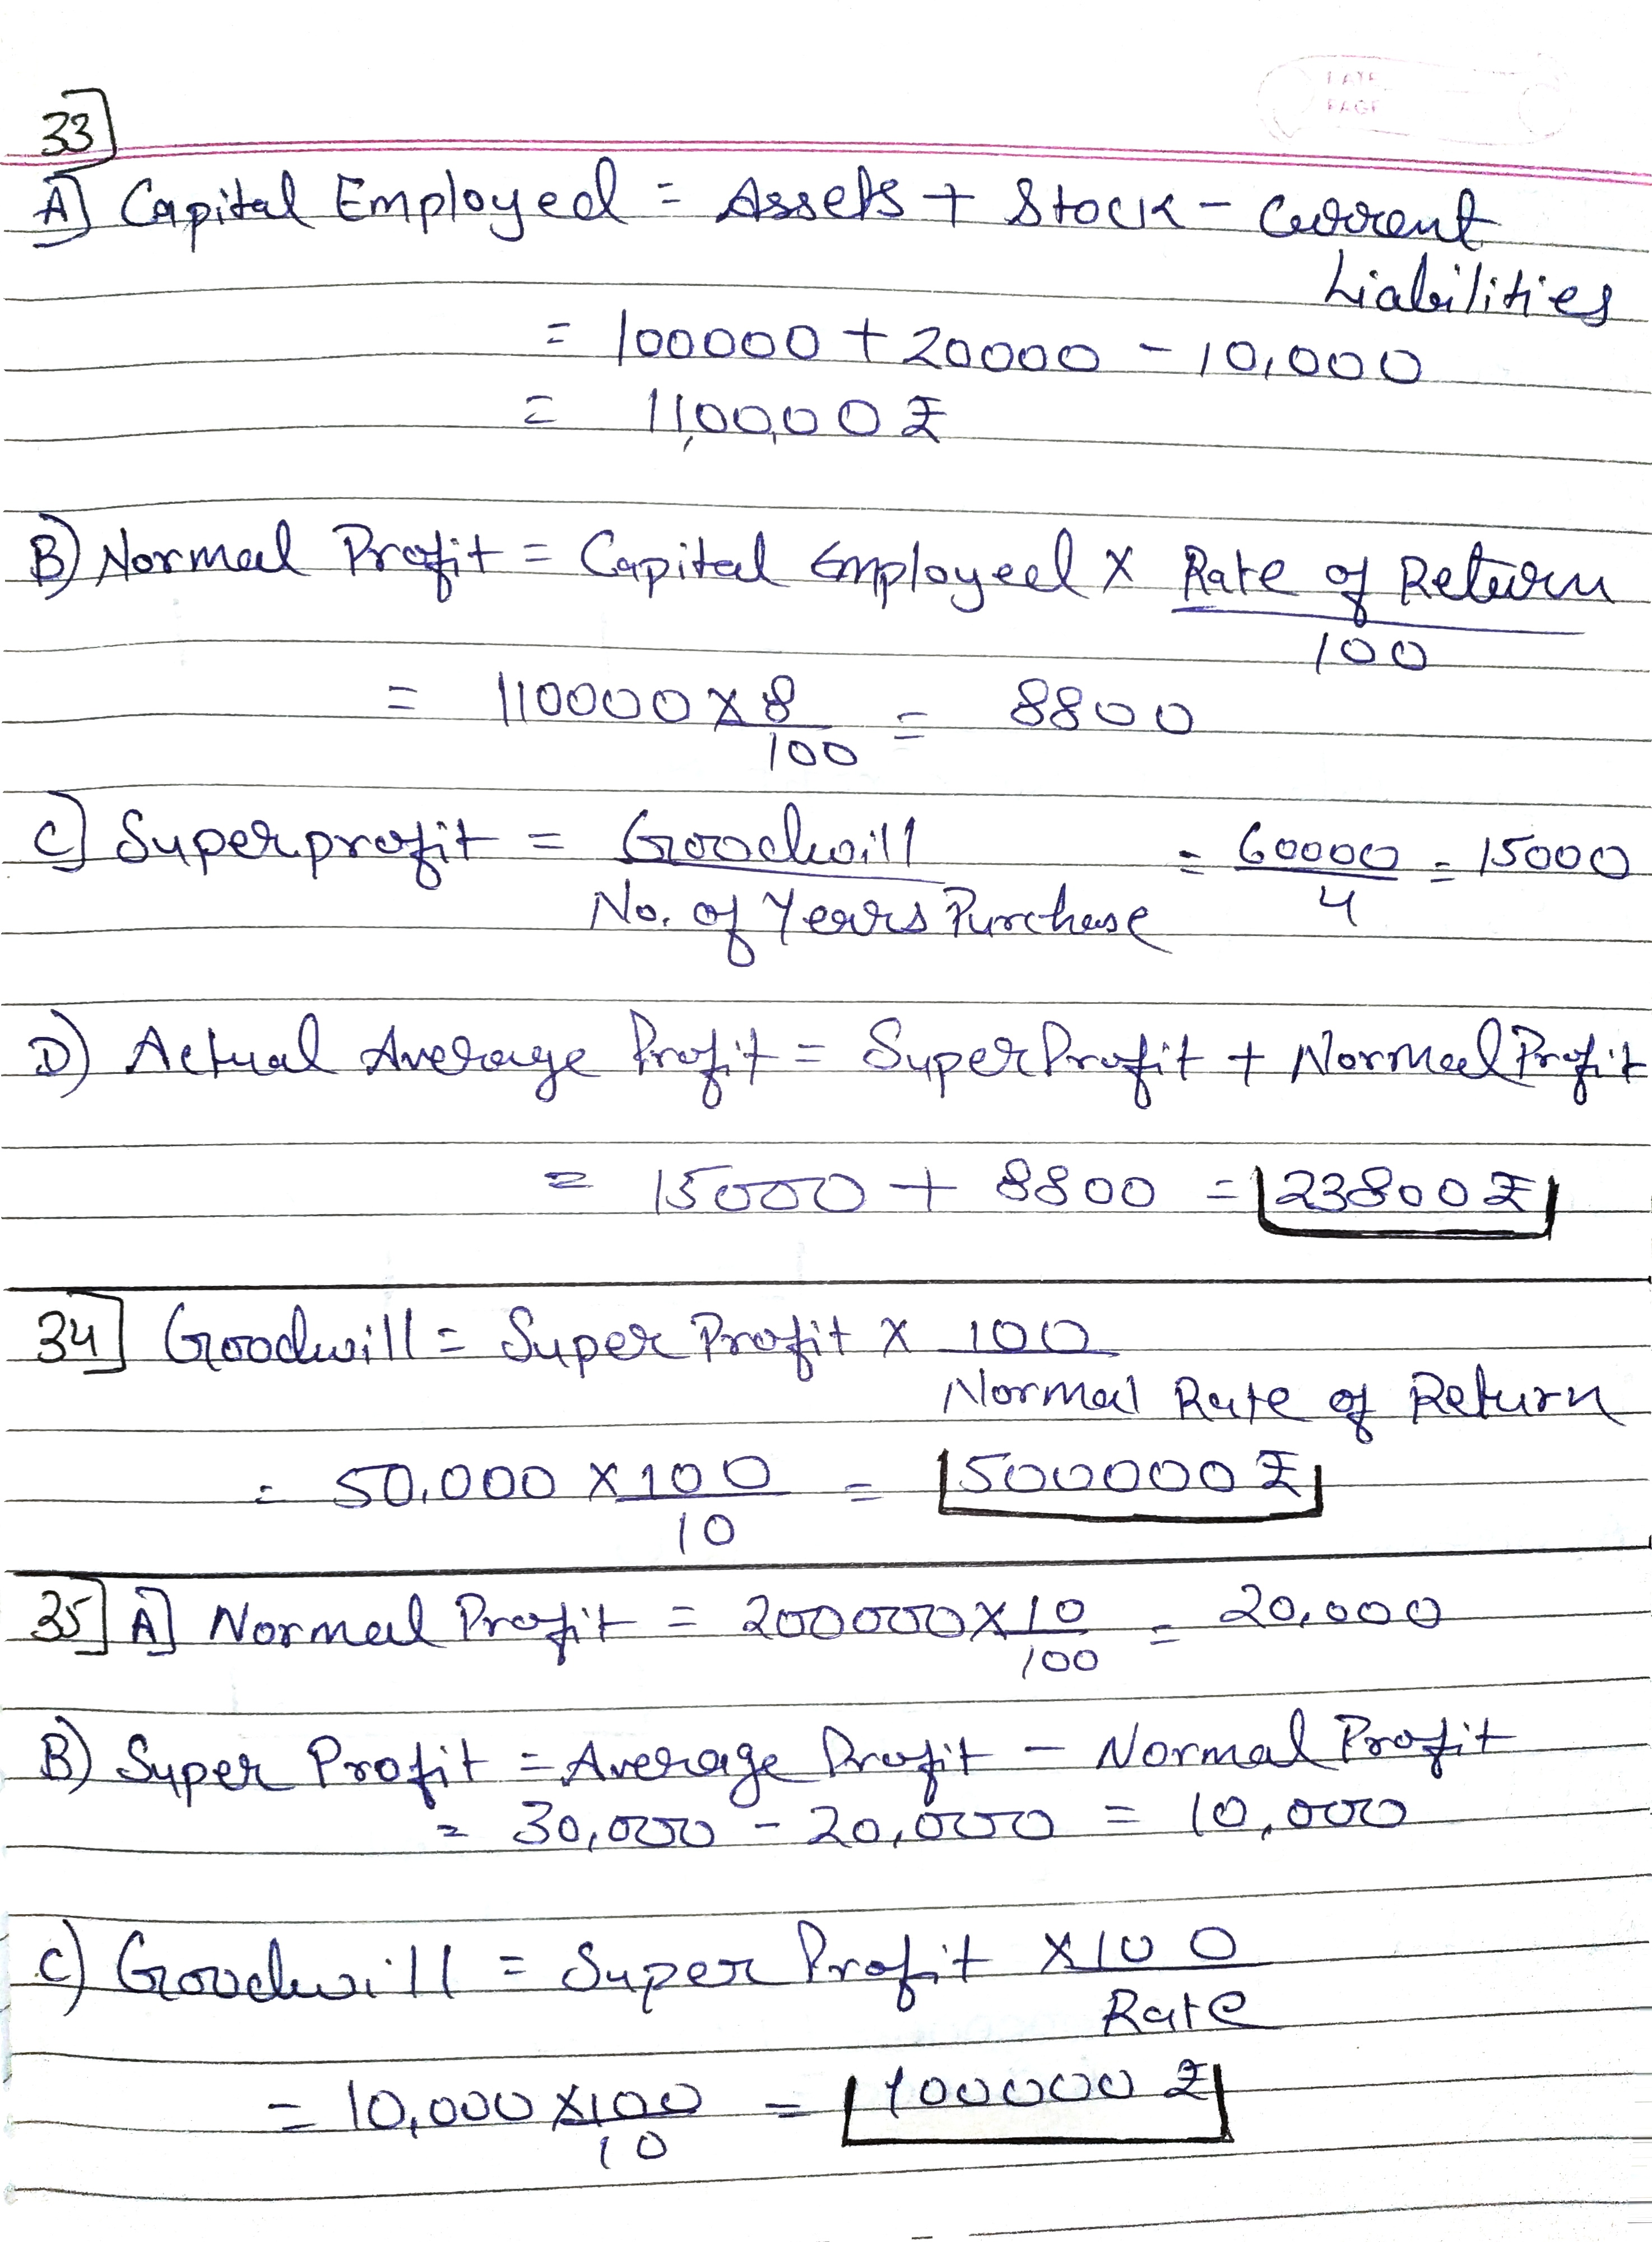 DATE
PAGE
33]
A] Capital Employed = Assets + Stock - Current
Liabilities
= 100000 + 20000 - 10,000
= 11,00,00 ₹
B) Normal Profit = Capital Employed X Rate of Return
100
= 110000 X 8 = 8800
100
C] Superprofit = Goodwill = 60000 = 15000
No. of Years Purchase 4
D) Actual Average Profit = Super Profit + Normal Profit
= 15000 + 8800 = 23800 ₹
34] Goodwill = Super Profit X 100
Normal Rate of Return
= 50,000 X 100 = 500000 ₹
10
35] A] Normal Profit = 200000 X 10 = 20,000
100
B) Super Profit = Average Profit - Normal Profit
= 30,000 - 20,000 = 10,000
C) Goodwill = Super Profit X 100
Rate
= 10,000 X 100 = 100000 ₹
10